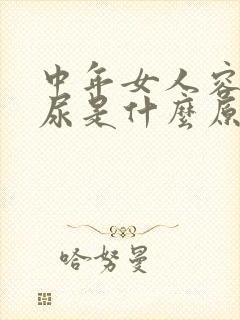 中年女人容
尿是什麼原
哈努曼